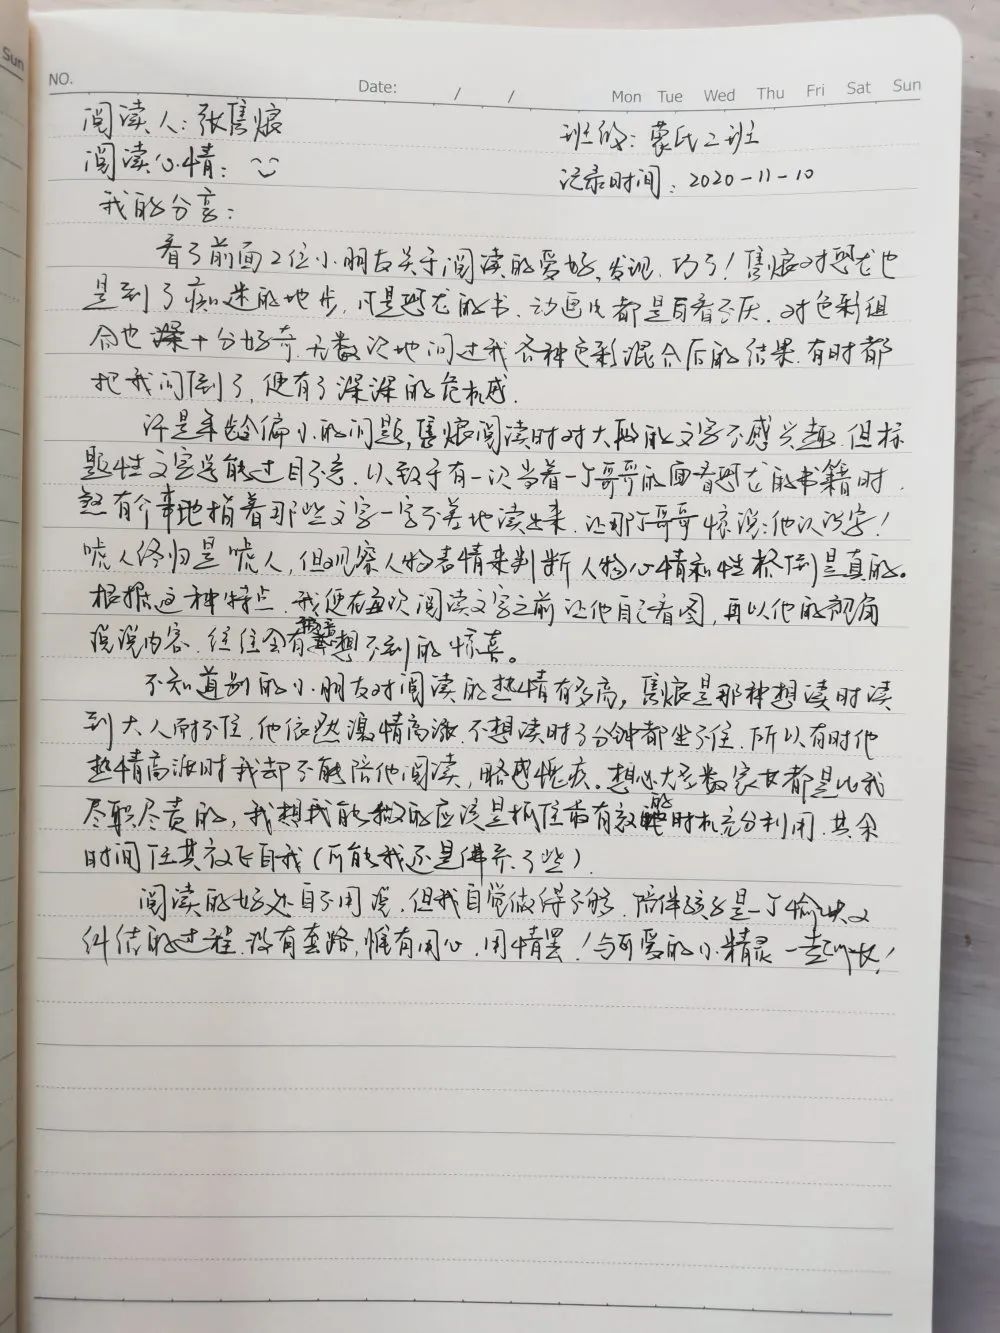 Sun
NO.
Date: / /
Mon Tue Wed Thu Fri Sat Sun
阅读人：张隽烺
班级：蒙氏二班
阅读心情：
记录时间：2020-11-10
我的分享：
看了前面2位小朋友关于阅读的爱好，发现，巧了！隽烺对恐龙也
是到了痴迷的地步，凡是恐龙的书、动画片都是百看不厌，对色彩组
合也十分好奇，无数次地问过我各种色彩混合后的结果，有时都
把我问倒了，便有了深深的危机感。
许是年龄偏小的问题，隽烺阅读时对大段的文字不感兴趣，但标
题性文字总能过目不忘，以致于有一次当着一个哥哥的面看恐龙的书籍时，
煞有个事地指着那些文字一字不差地读出来，让那个哥哥惊说：他认识字！
唬人终归是唬人，但观察人物表情来判断人物心情和性格倒是真的。
根据这种特点，我便在每次阅读文字之前让他自己看图，再以他的视角
说说内容，往往会有想不到的惊喜。
不知道别的小朋友对阅读的热情有多高，隽烺是那种想读时读
到大人耐不住，他依然激情高涨，不想读时3分钟都坐不住，所以有时他
热情高涨时我却不能陪他阅读，略感愧疚。想必大多数家长都是比我
尽职尽责的，我想我能做的应该是抓住最有效的时机充分利用，其余
时间任其放飞自我（可能我还是佛系了些）
阅读的好处自不用说，但我自觉做得不够，陪伴孩子是一个愉快又
纠结的过程，没有套路，惟有用心、用情罢！与可爱的小精灵一起成长！